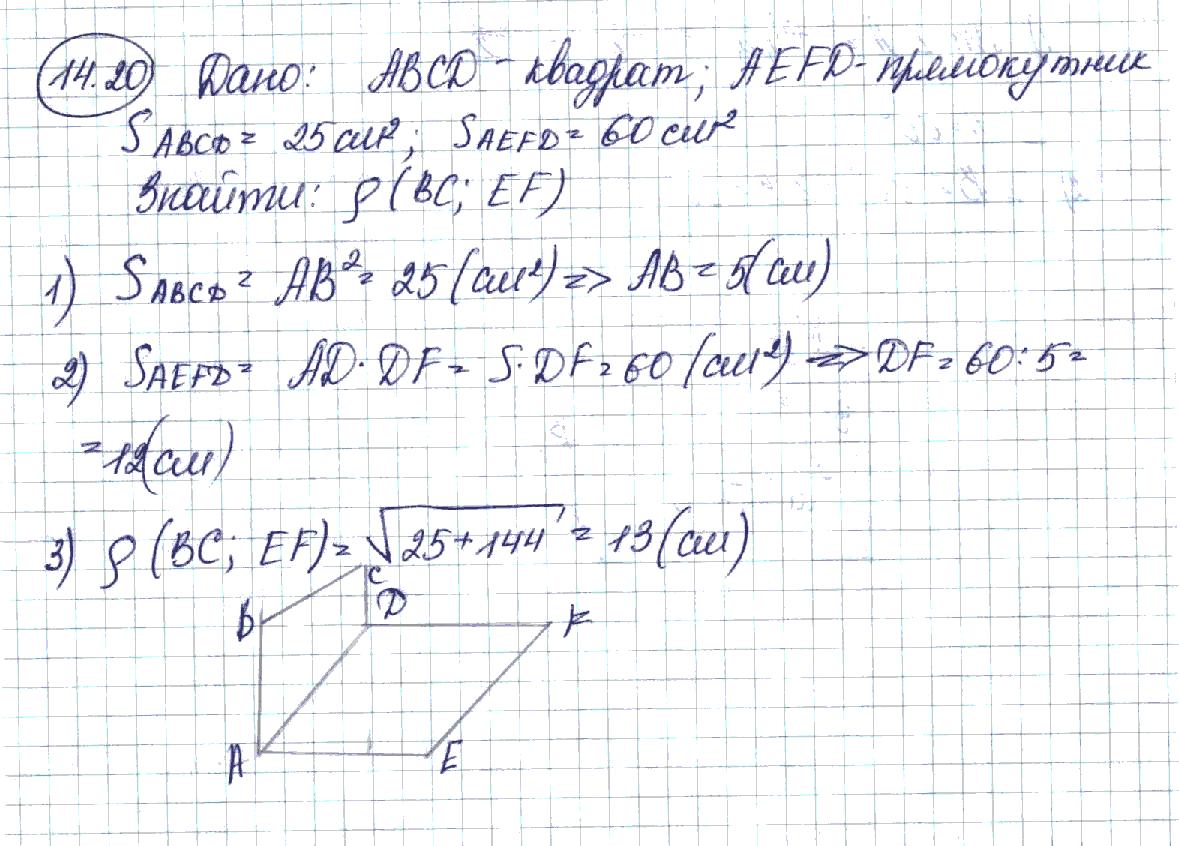 14.20 Дано: ABCD - квадрат; AEFD - прямокутник
S ABCD = 25 см²; S AEFD = 60 см²
Знайти: ρ(BC; EF)
1) S ABCD = AB² = 25 (см²) => AB = 5 (см)
2) S AEFD = AD · DF = 5 · DF = 60 (см²) => DF = 60 : 5 =
= 12 (см)
3) ρ (BC; EF) = √25+144 = 13 (см)
C
B D F
A E